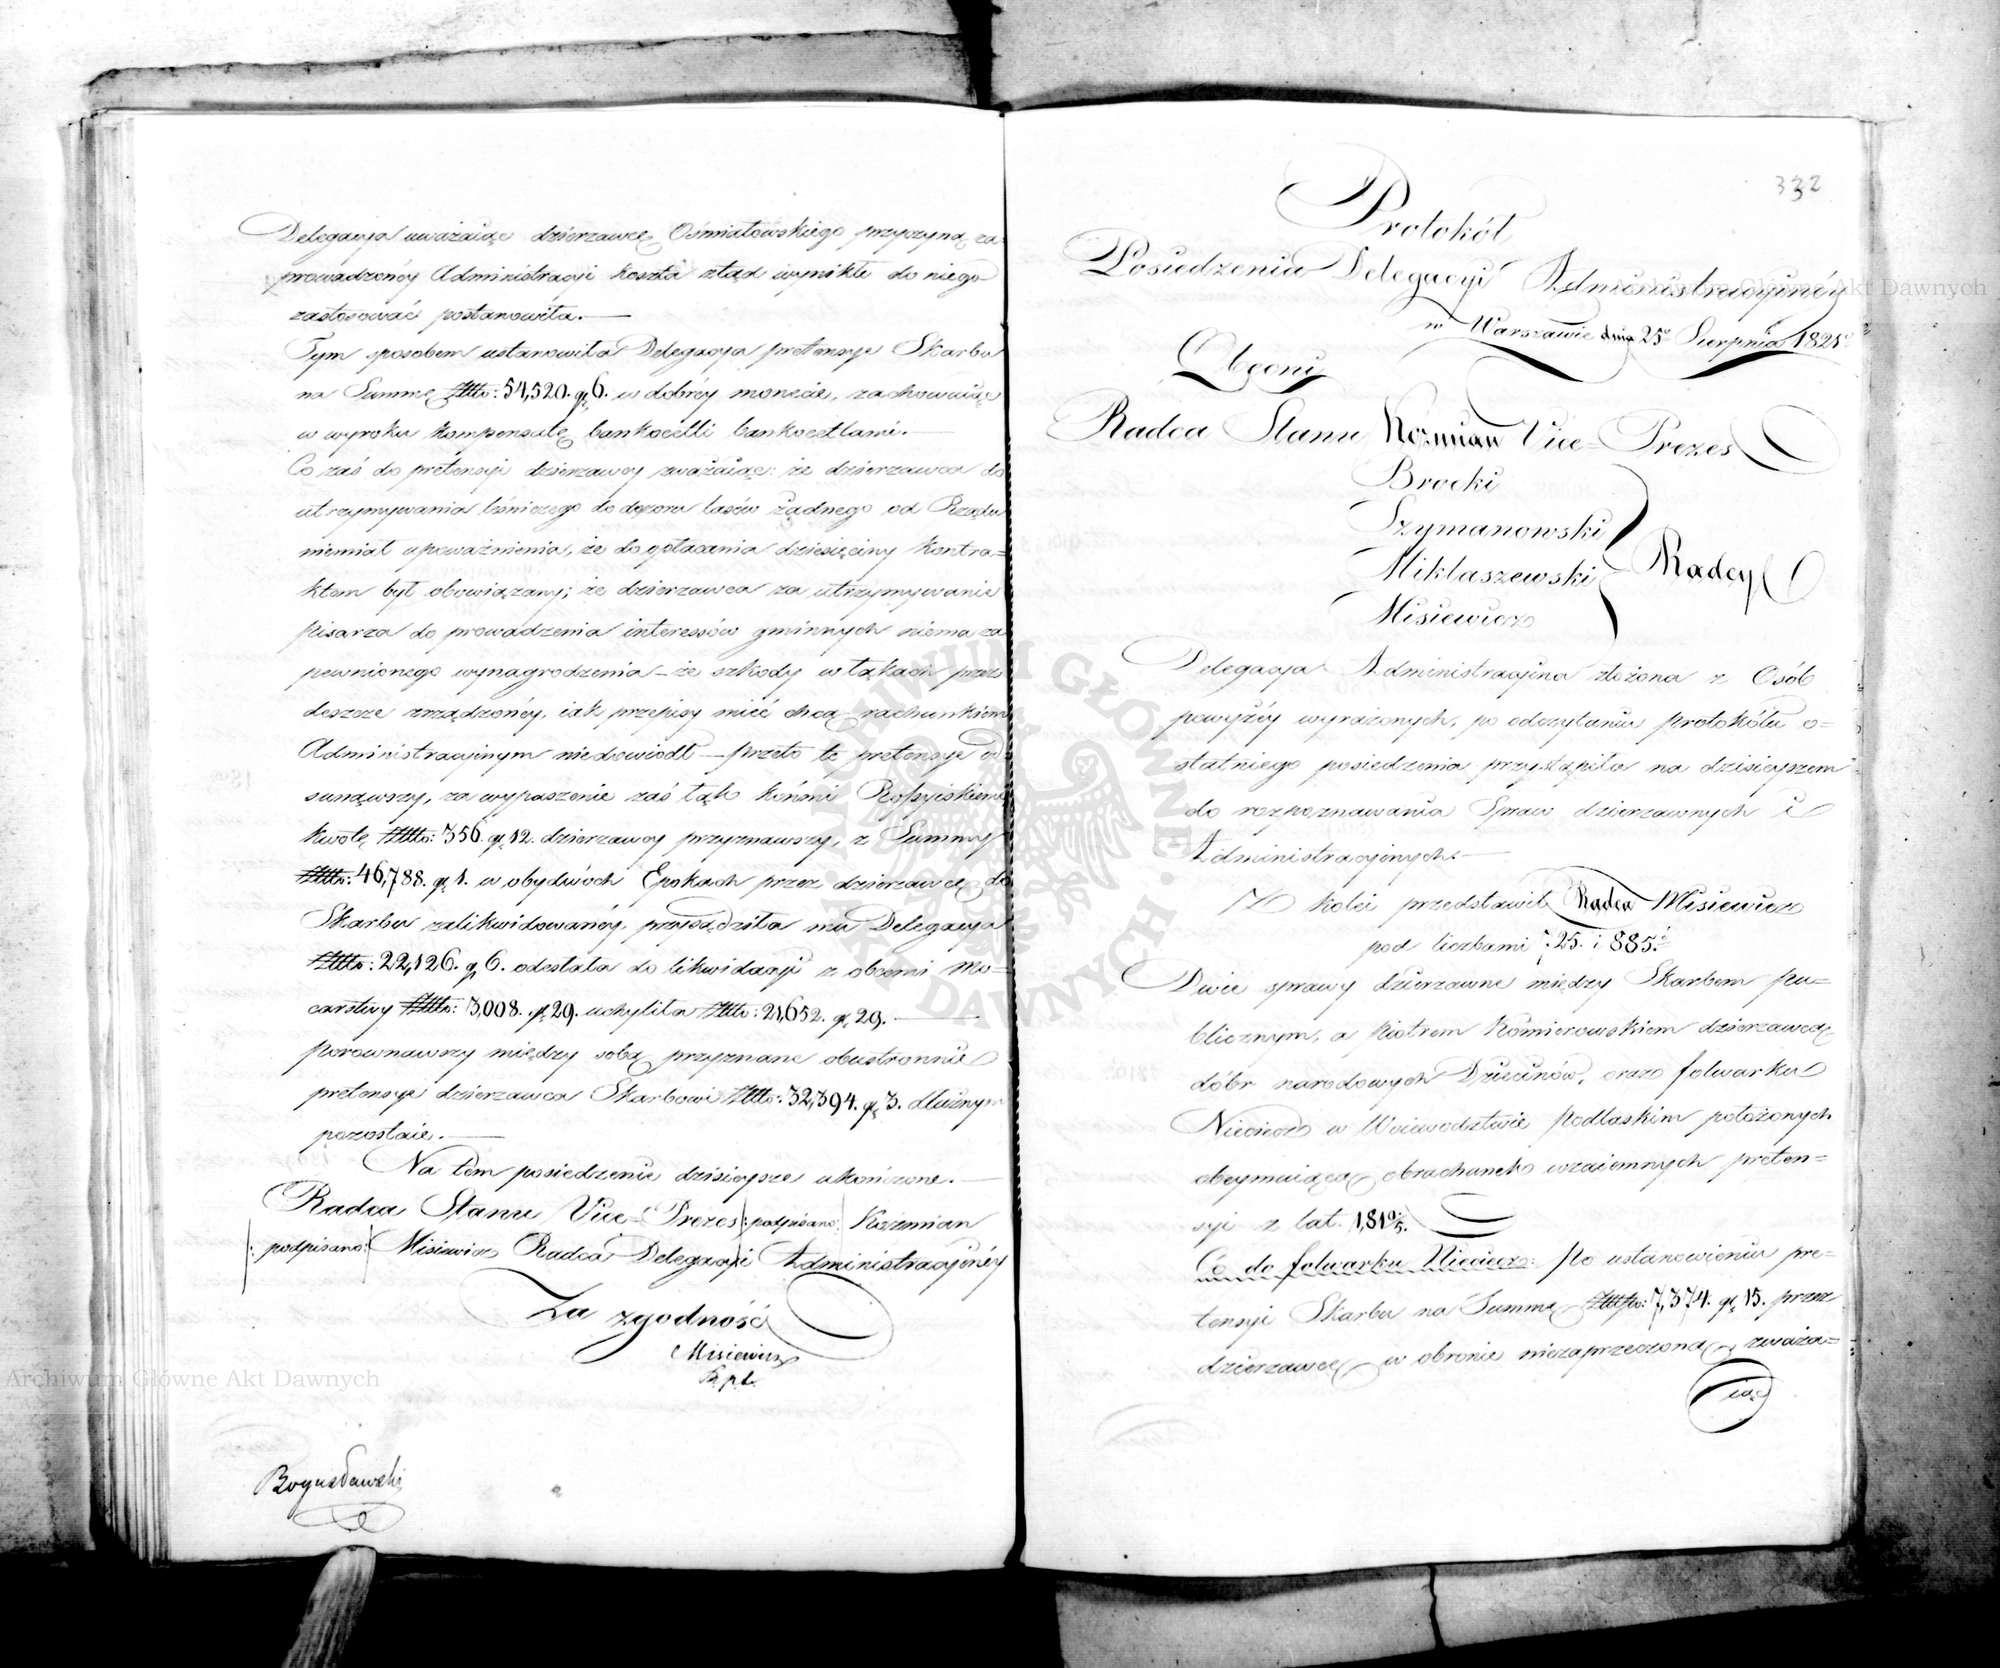 Delegacya uważaiąc dzierzawcę Ośmiałowskiego przyczyną za-
prowadzonéy Administracyi koszta ztąd wynikłe do niego
zastosować postanowiła.—
Tym sposobem ustanowiła Delegacya pretensye Skarbu
na Summę złłł: 54,520. gr 6. w dobréy monecie, zachowuiąc
w wyroku kompensatę bankocetli bankocetlami.—
Co zaś do pretensyi dzierzawcy zważaiąc: że dzierzawca do
utrzymywania leśniczego do dozoru lasów żadnego od Rządu
niemiał upoważnienia, że do opłacania dziesięciny kontra=
ktem był obowiązany; że dzierzawca za utrzymywanie
pisarza do prowadzenia interessów gminnych niema za
pewnionego wynagrodzenia — że szkody w łąkach przez
deszcze zrządzonéy, iak przepisy mieć chcą rachunkiem
Administracyinym niedowiodł — przeto te pretensye od
sunąwszy, za wypaszenie zaś łąk końmi Rossyiskiemi
kwotę 356. gr 12. dzierzawcy przyznawszy, z Summy
46,788. gr 1. w obydwóch Epokach przez dzierzawcę do
Skarbu zalikwidowanéy, przysądziła mu Delegacya
22,126. gr 6. odesłała do likwidacyi z obcemi Mo=
carstwy 3,008. gr 29. uchyliła 21,652. gr 29.—
Porownawszy między sobą przyznane obustronnie
pretensye dzierzawca Skarbowi 32,394. gr 3. dłużnym
pozostaie.—
Na tem posiedzenie dzisieysze ukończone.—
Radca Stanu Vice-Prezes /:podpisano:/ Koźmian
/:podpisano:/ Misiewicz Radca Delegacyi Administracyinéy
Za zgodność
Misiewicz
Bogusławski
332
Protokół
Posiedzenia Delegacyi Administracyinéy
w Warszawie dnia 25o Sierpnia 1821o
Obecni
Radca Stanu Koźmian Vice-Prezes
Brocki
Szymanowski
Miklaszewski
Radcy
Misiewicz
Delegacya Administracyina złożona z Osób
powyżéy wyrażonych, po odczytaniu protokółu o=
statniego posiedzenia przystąpiła na dzisieyszem
do rozpoznawania Spraw dzierzawnych i
Administracyinych.—
Z kolei przedstawił Radca Misiewicz
pod liczbami 725. i 885.
Dwie sprawy dzierzawne między Skarbem pu=
blicznym, a Piotrem Komierowskiem dzierzawcą
dóbr narodowych Dziecinów, oraz folwarku
Nieciecz w Woiewodztwie Podlaskim położonych
obeymuiącą obrachunek wzaiemnych preten=
syi z lat
Co do folwarku Nieciecz: Po ustanowieniu pre=
tensyi Skarbu na Summę 7,374. gr 15. przez
dzierzawcę w obronie niezaprzeczoną, zważa=
iąc
Archiwum Główne Akt Dawnych
Archiwum Główne Akt Dawnych
ARCHIWUM GŁÓWNE AKT DAWNYCH